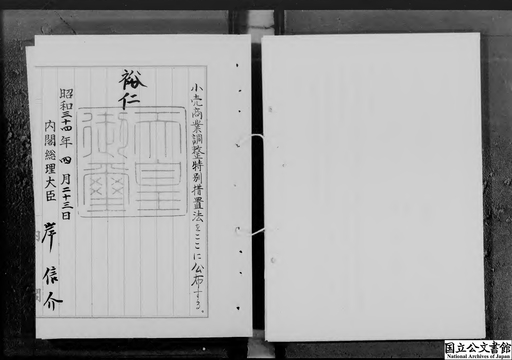 小売商業調整特別措置法をここに公布する。
裕仁
天皇御璽
昭和三十四年四月二十三日
内閣総理大臣 岸信介
国立公文書館
National Archives of Japan